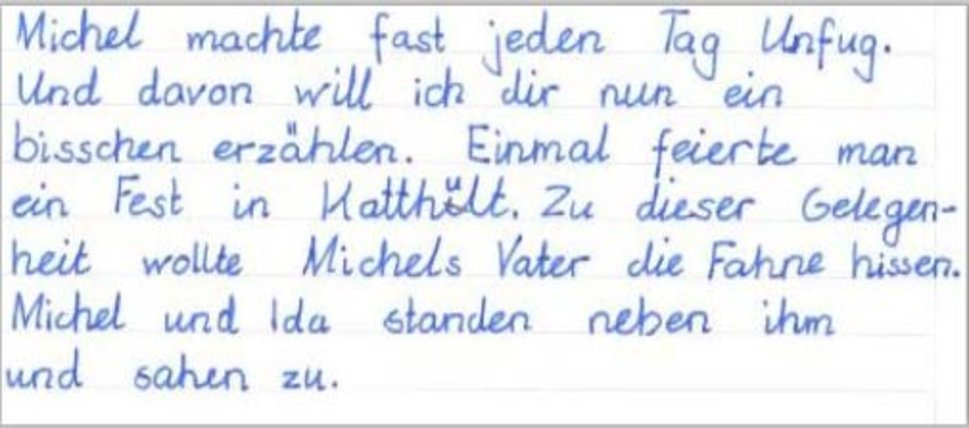 Michel machte fast jeden Tag Unfug.
Und davon will ich dir nun ein
bisschen erzählen. Einmal feierte man
ein Fest in Katthült. Zu dieser Gelegen-
heit wollte Michels Vater die Fahne hissen.
Michel und Ida standen neben ihm
und sahen zu.